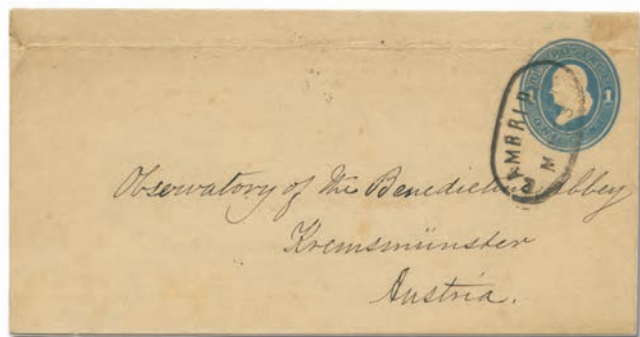 1
AMBRID
Observatory of the Benedictine Abbey
Kremsmünster
Austria.